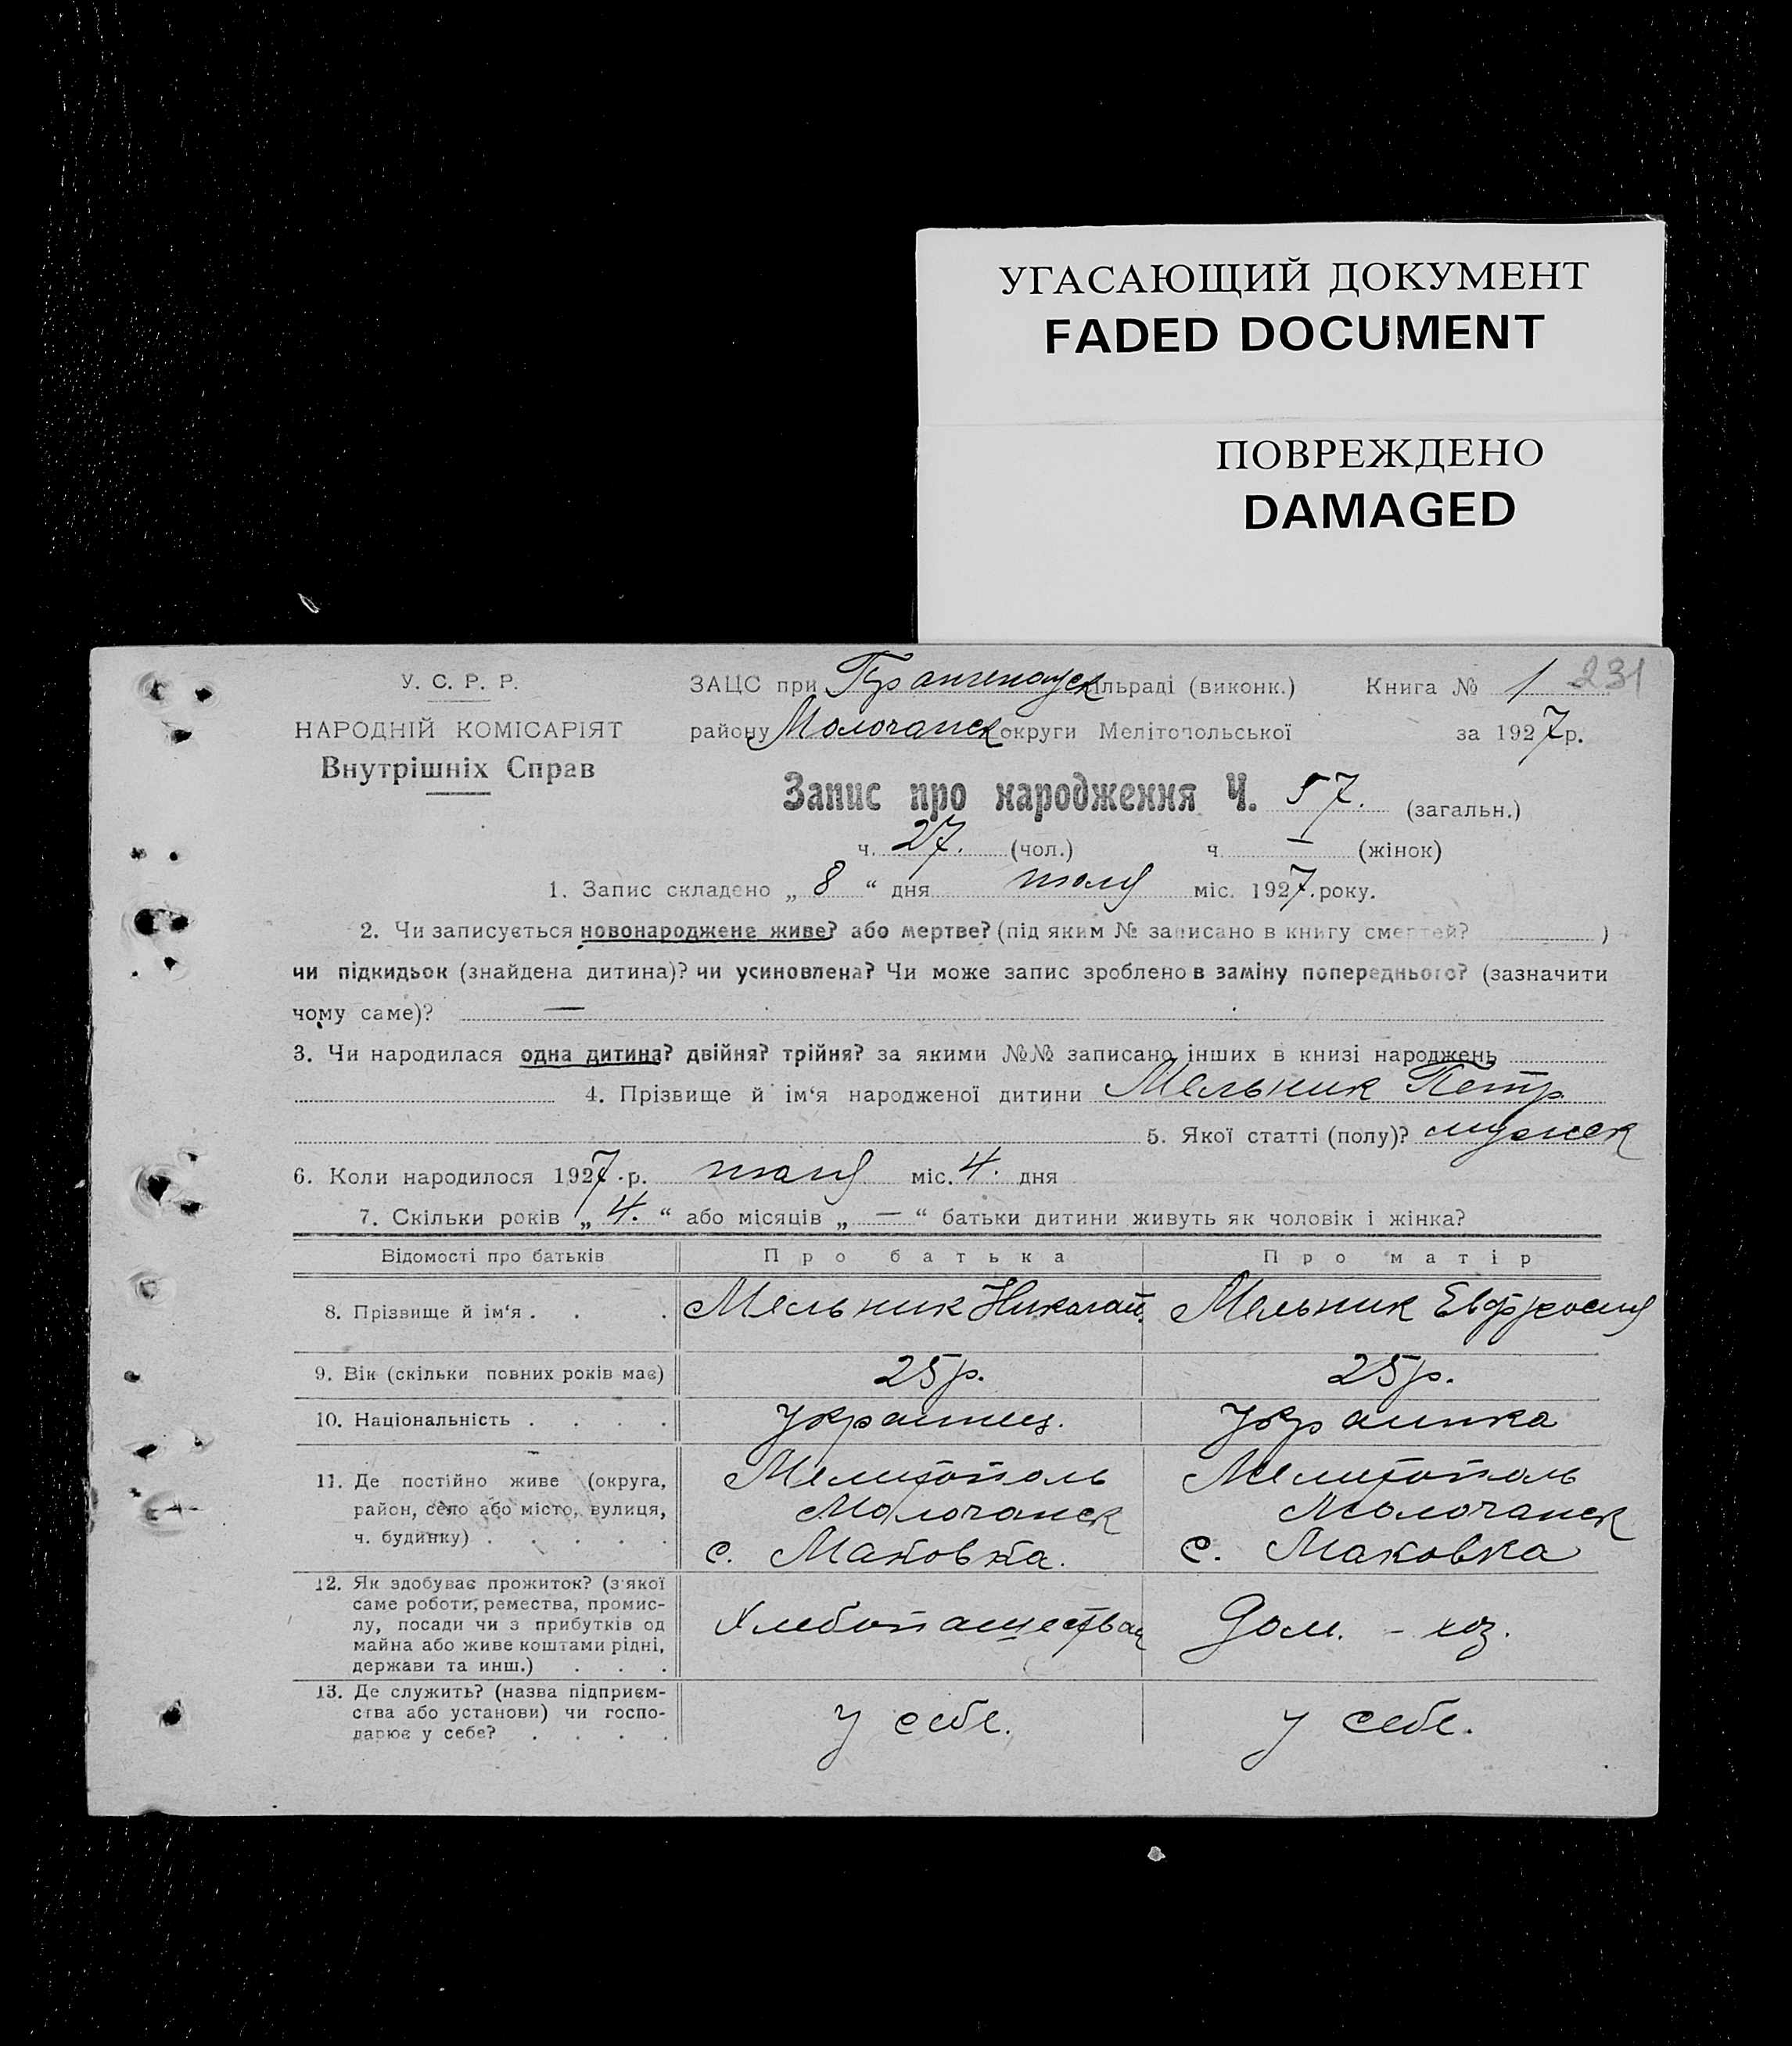 УГАСАЮЩИЙ ДОКУМЕНТ
FADED DOCUMENT
ПОВРЕЖДЕНО
DAMAGED
У. С. Р. Р.
НАРОДНІЙ КОМІСАРІЯТ
Внутрішніх Справ
ЗАЦС при сільраді (виконк.) Книга № 1 231
району Молочанск округи Мелітопольської за 1927 р.
Запис про народження Ч. 57. (загальн.)
ч. 27. (чол.) ч. — (жінок)
1. Запис складено „ 8 “ дня июля міс. 1927. року.
2. Чи записується новонароджене живе? або мертве? (під яким № записано в книгу смертей? )
чи підкидьок (знайдена дитина)? чи усиновлена? Чи може запис зроблено в заміну попереднього? (зазначити
чому саме)? —
3. Чи народилася одна дитина? двійня? трійня? за якими №№ записано інших в книзі народжень
4. Прізвище й ім‘я народженої дитини Мельник Петр
5. Якої статті (полу)? мужск
6. Коли народилося 1927 . р. июля міс. 4. дня
7. Скільки років „ 4. “ або місяців „ — “ батьки дитини живуть як чоловік і жінка?
Відомості про батьків Про батька Про матір
8. Прізвище й ім‘я . . . Мельник Николай. Мельник Евфросия
9. Вік (скільки повних років має) 25 р. 25 р.
10. Національність . . . . Украинец. Украинка
11. Де постійно живе (округа, район, село або місто, вулиця, ч. будинку) . . . . .
Мелитополь Мелитополь
Молочанск Молочанск
с. Маковка. с. Маковка
12. Як здобуває прожиток? (з якої
саме роботи, ремества, промис-
лу, посади чи з прибутків од
майна або живе коштами рідні,
держави та инш.) . . .
Хлебопашества Дом. - хоз.
13. Де служить? (назва підприєм-
ства або установи) чи госпо-
дарює у себе? . . . .
У себе. У себе.